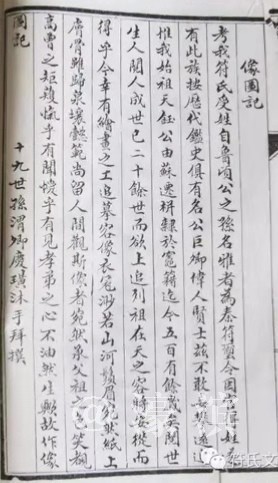 像圖記
考我符氏受姓自魯頃公之孫名雅者為秦符璽令因官為姓
有此族按歷代鑑史俱有名公巨卿偉人賢士茲不敢妄攀遠追
惟我始祖天鈺公由蘇遷栟隸於竈籍迄今五百有餘歲矣閱世
生人閱人成世已二十餘世而欲上追列祖在天之容時安從而
得乎今幸有繪畫之工追摹容像衣冠渺若山河鬚眉宛然紙上
膚骨雖歸泉壤懿範尚留人間觀斯像者宛然承父祖之色笑覩
高曾之矩矱愾乎有聞僾乎有見孝弟之心不油然生歟故作像
圖記
十九世孫渭卿慶璜沐手拜撰
符氏文